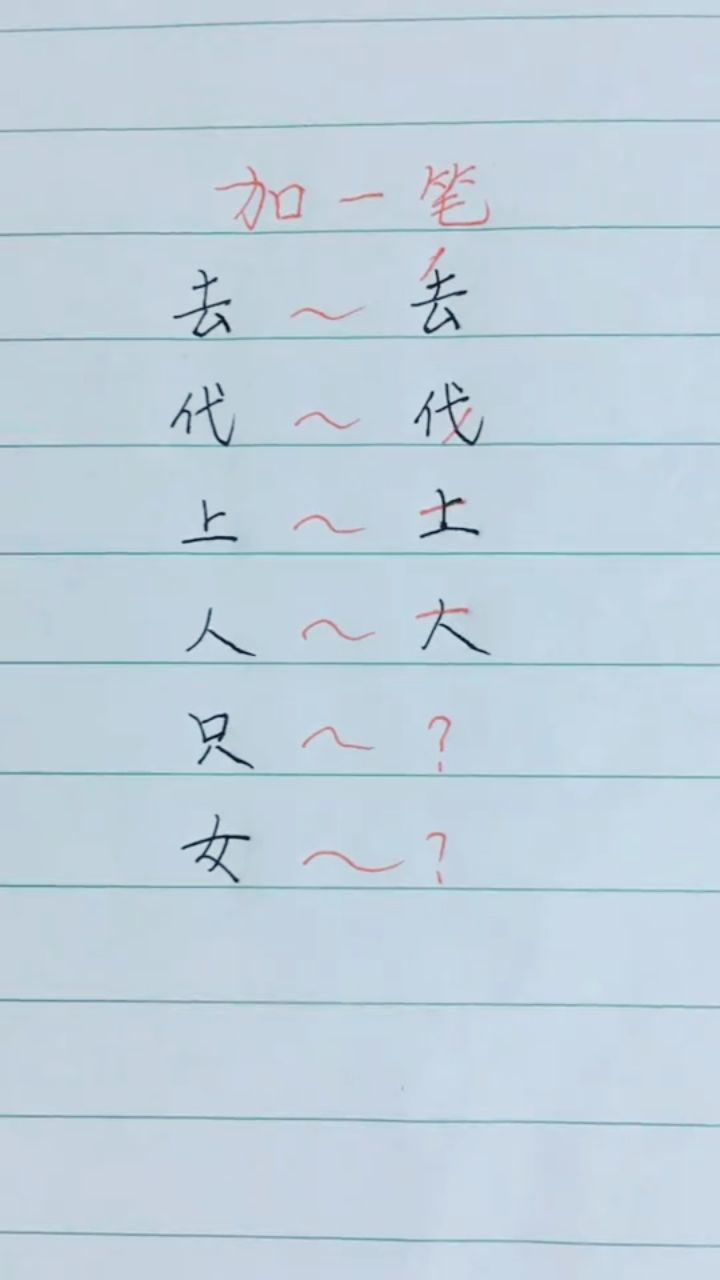 加一笔
去～丢
代～伐
上～土
人～大
只～?
女～?